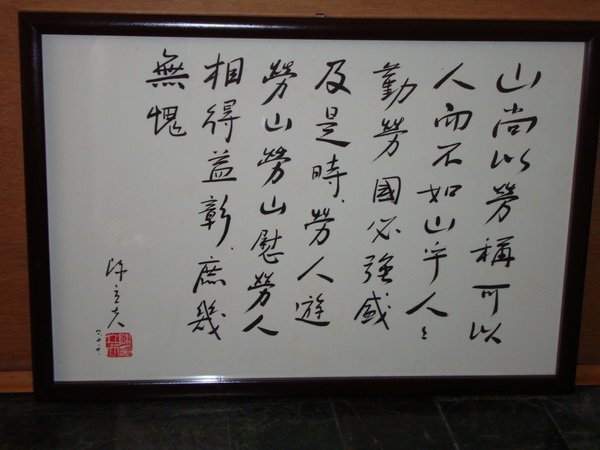 山尚以勞稱可以
人而不如山乎人々
勤勞國必強盛
及是時、勞人遊
勞山勞山慰勞人
相得益彰、庶幾
無愧
陳立夫